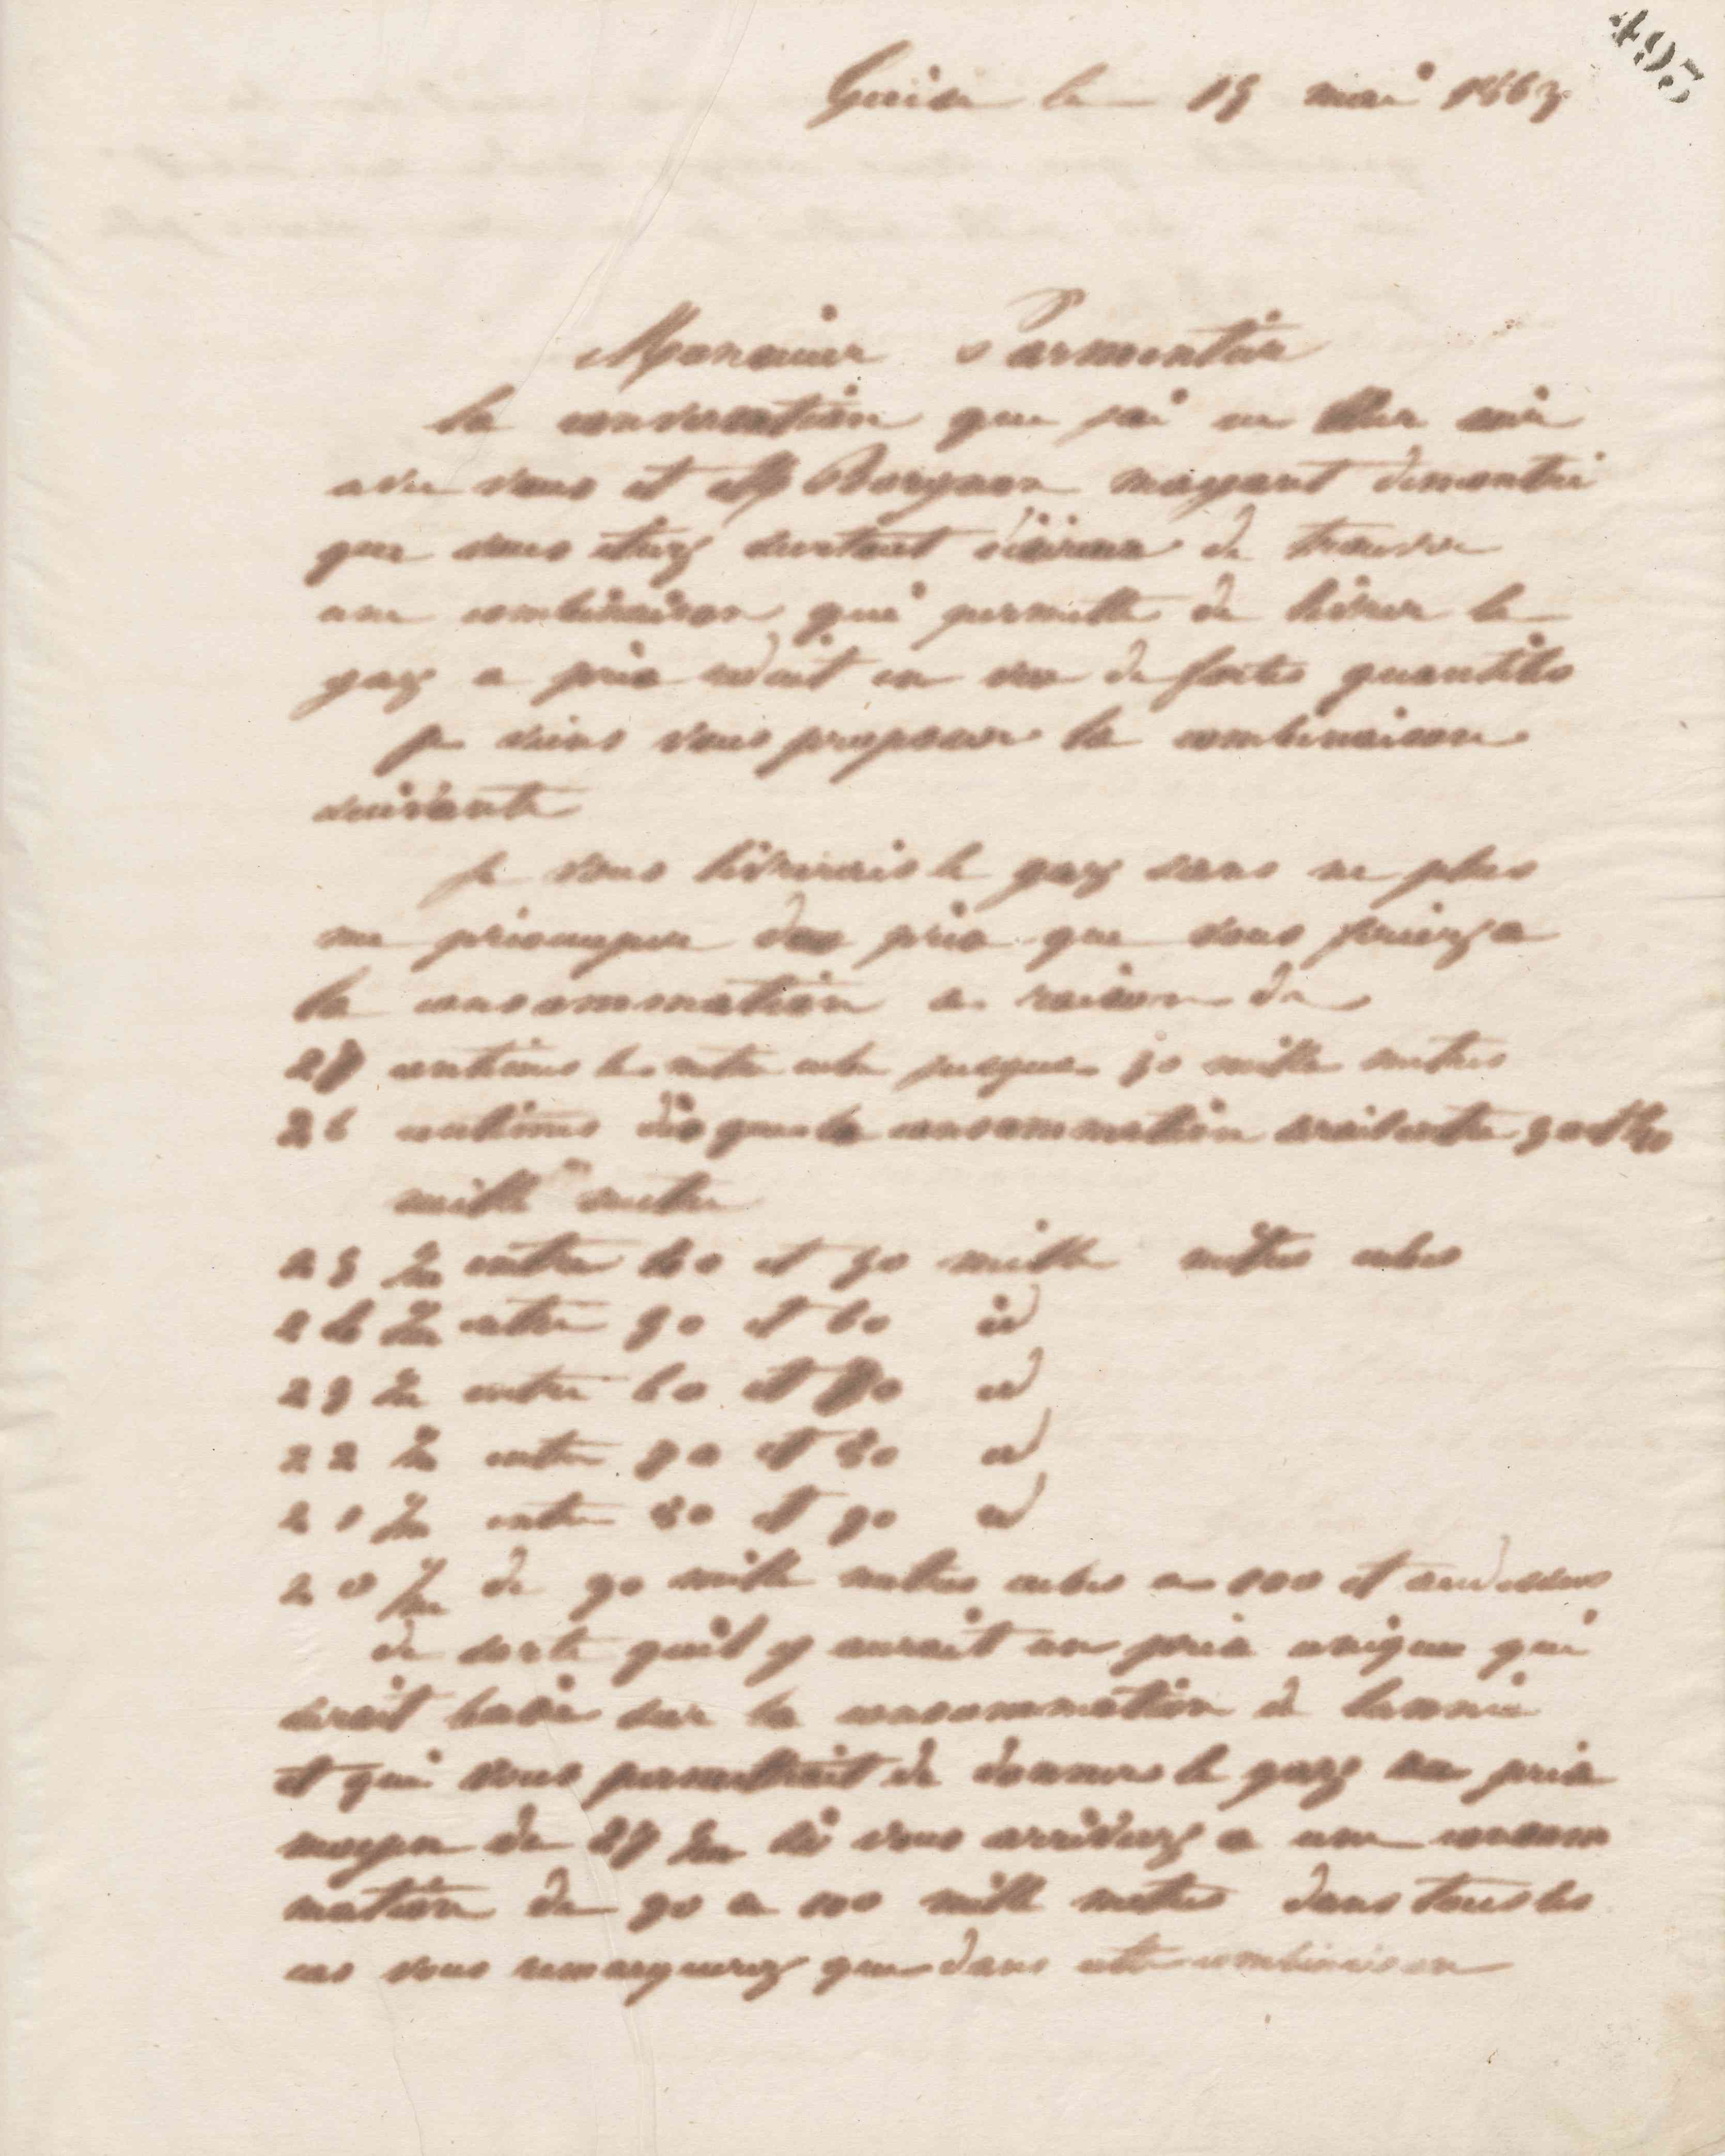 495
Guise le 15 mai 1863
Monsieur Parmentier
la conversation que jai eu hier soir
avec vous et M Borgnon mayant demontré
que vous étiez surtout désireux de trouver
une combinaison qui permette de livrer le
gaz a prix reduit en vue de fortes quantités
je viens vous proposer la combinaison
suivante
je vous livrerais le gaz sans ne plus
me préoccuper des prix que vous feriez a
la consommation a raison de
27 centimes le metre cube jusque 30 mille metres
26 centimes dès que la consommation serait entre 30 et 40
mille metres
25 entre 40 et 50 mille mètres cubes
24 entre 50 et 60 id
23 entre 60 et 70 id
22 entre 70 et 80 id
21 entre 80 et 90 id
20 de 90 mille metres cubes a 100 et au dessus
de sorte quil y aurait un prix unique qui
serait basé sur la consommation de lannée
et qui vous permettrait de donner le gaz au prix
moyen de 27 si vous arriviez a une consom
mation de 90 a 100 mille metres dans tous les
cas vous remarquerez que dans cette combinaison